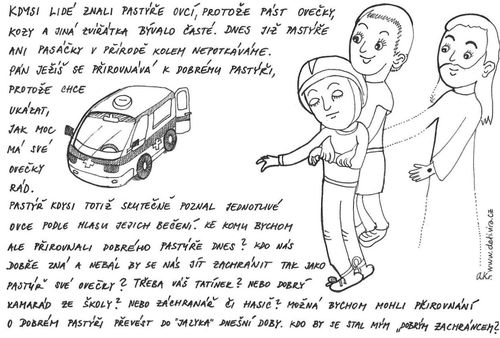 KDYSI LIDÉ ZNALI PASTÝŘE OVCÍ, PROTOŽE PÁST OVEČKY,
KOZY A JINÁ ZVÍŘÁTKA BÝVALO ČASTÉ. DNES JIŽ PASTÝŘE
ANI PASÁČKY V PŘÍRODĚ KOLEM NEPOTKÁVÁME.
PÁN JEŽÍŠ SE PŘIROVNÁVÁ K DOBRÉMU PASTÝŘI,
PROTOŽE CHCE
UKÁZAT,
JAK MOC
MÁ SVÉ
OVEČKY
RÁD.
PASTÝŘ KDYSI TOTIŽ SKUTEČNĚ POZNAL JEDNOTLIVÉ
OVCE PODLE HLASU JEJICH BEČENÍ. KE KOMU BYCHOM
ALE PŘIROVNALI DOBRÉHO PASTÝŘE DNES? KDO NÁS
DOBŘE ZNÁ A NEBÁL BY SE NÁS JÍT ZACHRÁNIT TAK JAKO
PASTÝŘ SVÉ OVEČKY? TŘEBA VÁŠ TATÍNEK? NEBO DOBRÝ
KAMARÁD ZE ŠKOLY? NEBO ZÁCHRANÁŘ ČI HASIČ? MOŽNÁ BYCHOM MOHLI PŘIROVNÁNÍ
O DOBRÉM PASTÝŘI PŘEVÉST DO "JAZYKA" DNEŠNÍ DOBY. KDO BY SE STAL MÝM „DOBRÝM ZACHRÁNCEM?
a.k. www.detivira.cz